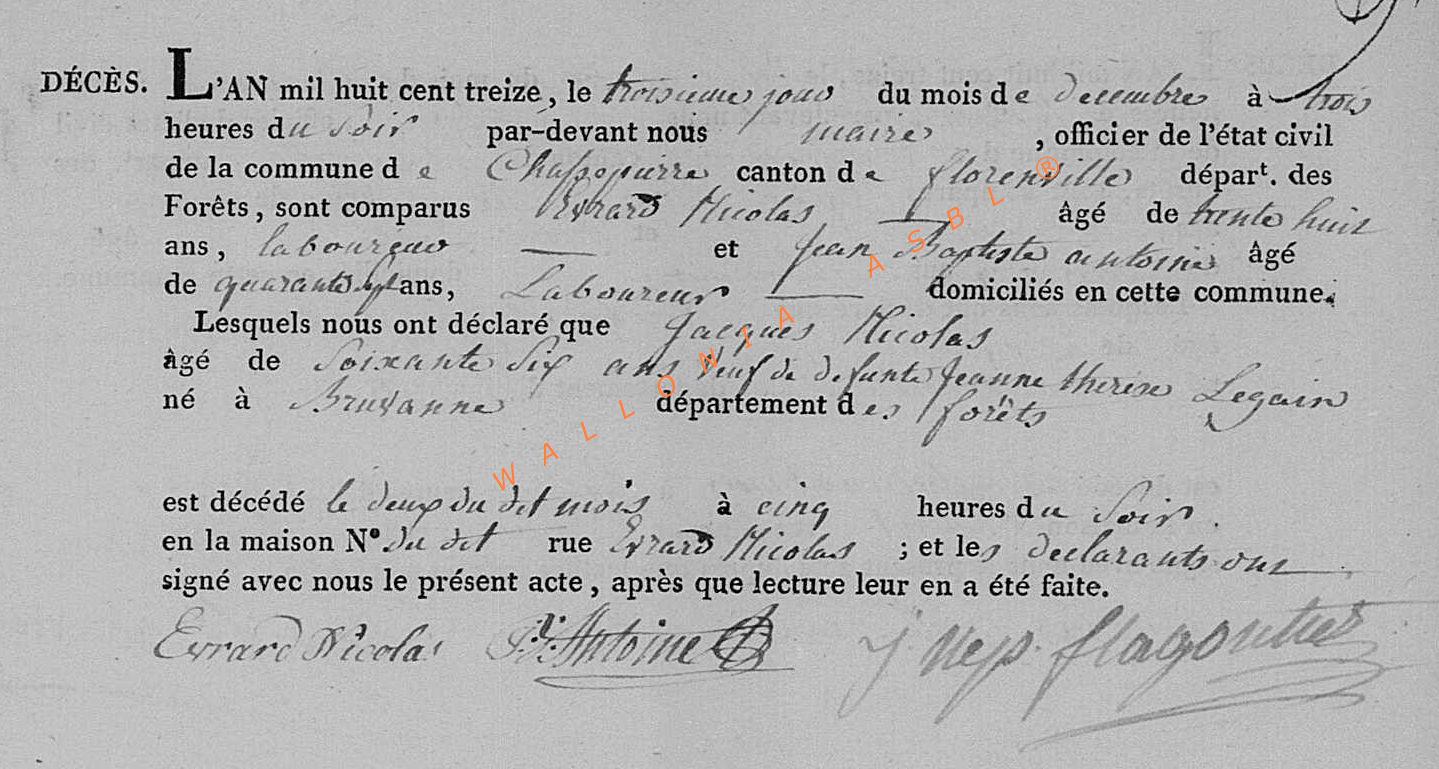 DÉCÈS. L'AN mil huit cent treize, le troisieme jour du mois de Decembre à trois
heures du soir par-devant nous maire, officier de l'état civil
de la commune de Chassepierre canton de florenville départ. des
Forêts, sont comparus Evrard Nicolas âgé de trente huit
ans, laboureur et Jean Baptiste antoine âgé
de quarante sept ans, Laboureur domiciliés en cette commune.
Lesquels nous ont déclaré que Jacques Nicolas
âgé de soixante six ans veuf de defunte Jeanne therese Legain
né à département des forêts
est décédé le deux du dit mois à cinq heures du Soir.
en la maison Nº du dit rue Evrard Nicolas; et les declarants ont
signé avec nous le présent acte, après que lecture leur en a été faite.
Evrard Nicolas J. B. Antoine J. Nep. flagontier
WALLONIA ASBL ®